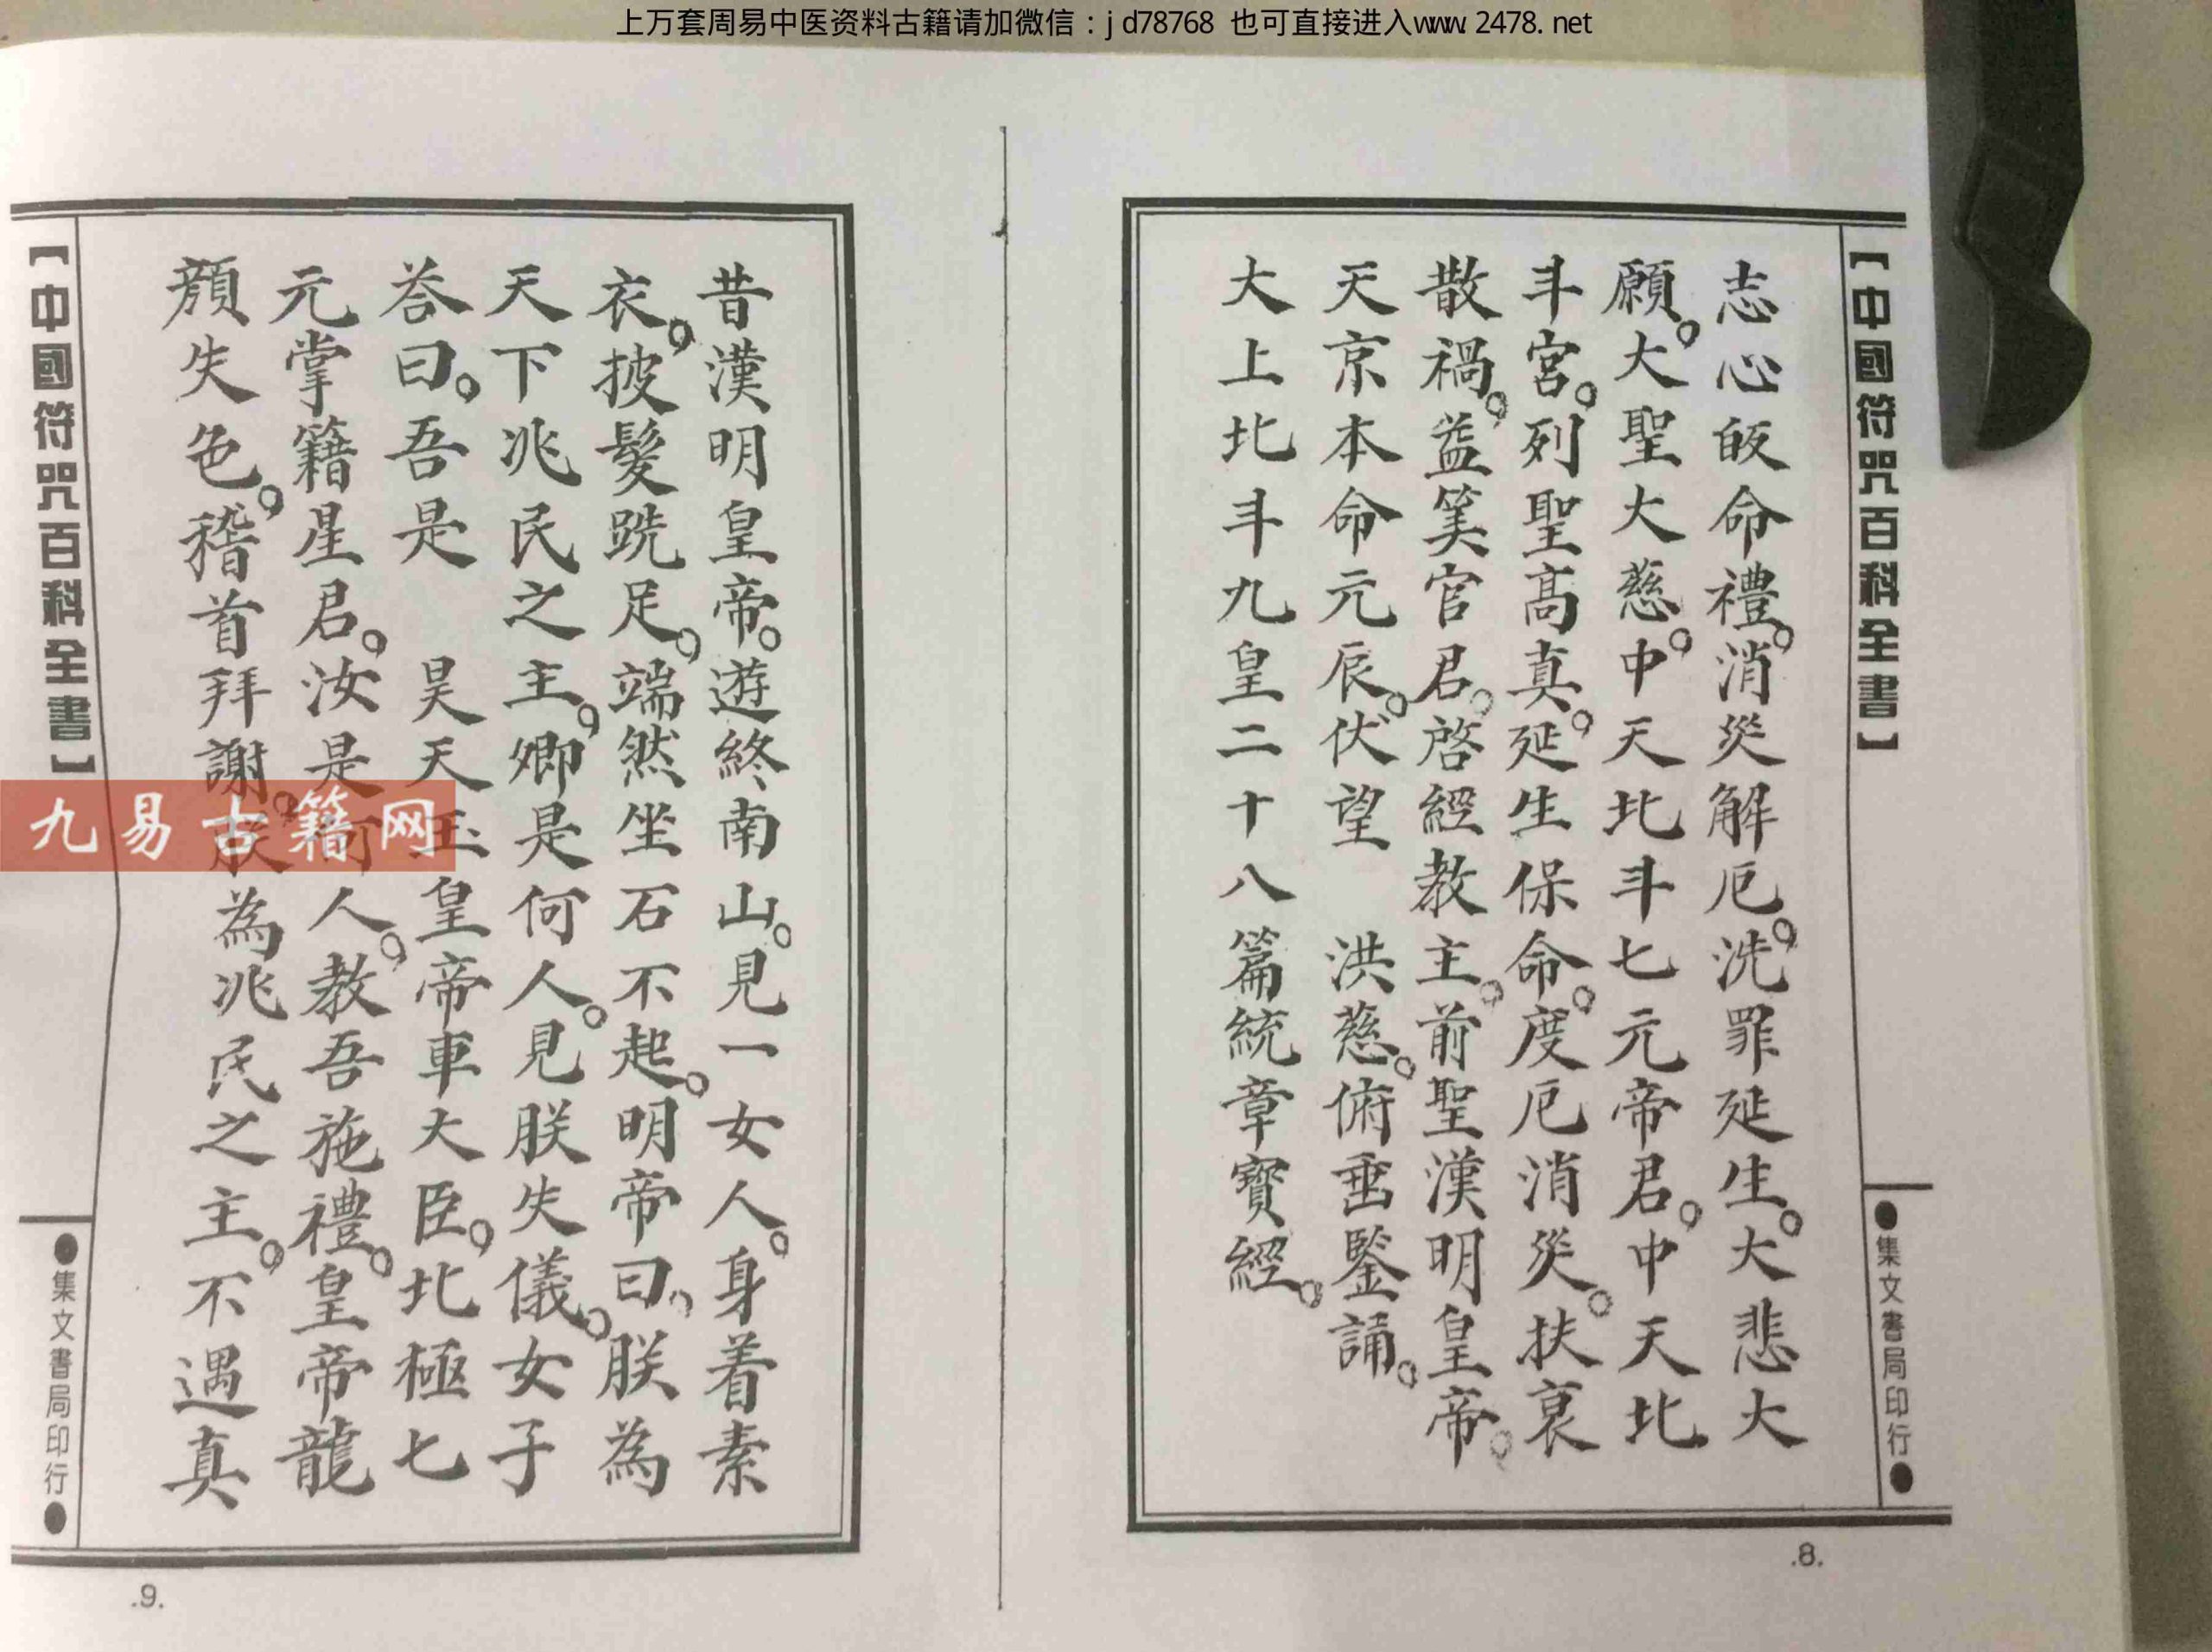 上万套周易中医资料古籍请加微信：jd78768 也可直接进入www.2478.net
【中國符咒百科全書】
●集文書局印行●
志心皈命禮。消災解厄。洗罪延生。大悲大
願。大聖大慈。中天北斗七元帝君。中天北
斗宮。列聖高真。延生保命。度厄消災。扶衰
散禍。益筭官君。啓經教主。前聖漢明皇帝。
天京本命元辰。伏望 洪慈。俯垂鑒誦。
大上北斗九皇二十八篇統章寶經。
.8.
昔漢明皇帝。遊終南山。見一女人。身着素
衣。披髮跣足。端然坐石不起。明帝曰。朕為
天下兆民之主。卿是何人。見朕失儀。女子
荅曰。吾是 昊天玉皇帝車大臣。北極七
元掌籍星君。汝是何人。教吾施禮。皇帝龍
顏失色。稽首拜謝。朕為兆民之主。不遇真
【中國符咒百科全書】
●集文書局印行●
.9.
九易古籍网